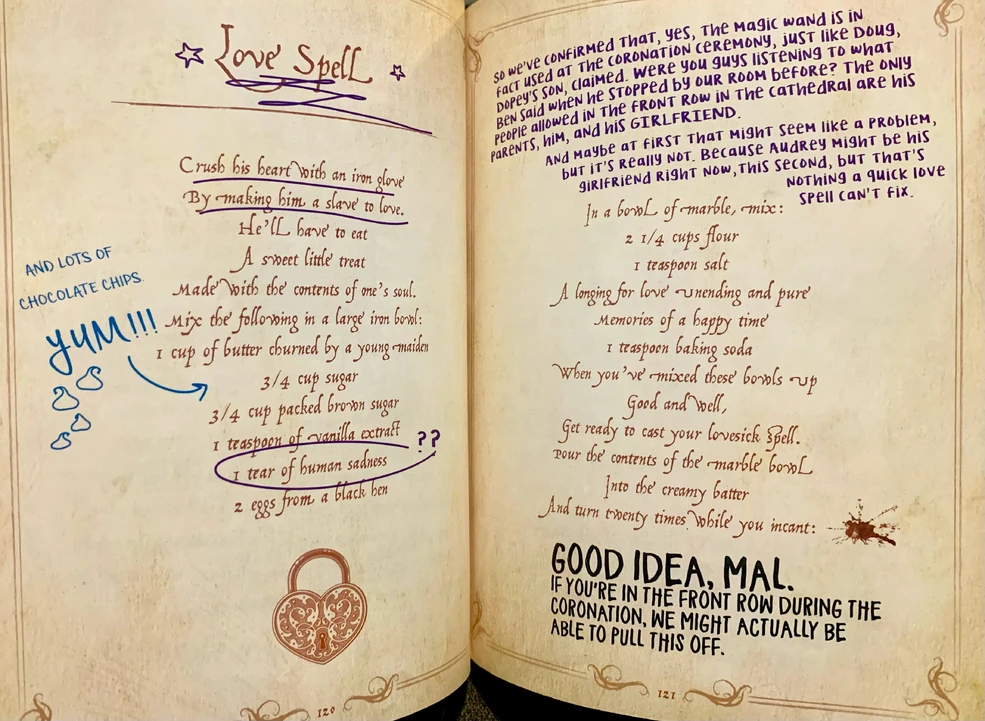 Love Spell
Crush his heart with an iron glove
By making him a slave to love.
He'll have to eat
A sweet little treat
Made with the contents of one's soul.
Mix the following in a large iron bowl:
1 cup of butter churned by a young maiden
3/4 cup sugar
3/4 cup packed brown sugar
1 teaspoon of vanilla extract
1 tear of human sadness
??
2 eggs from a black hen
AND LOTS OF
CHOCOLATE CHIPS.
YUM!!!
120
SO WE'VE CONFIRMED THAT, YES, THE MAGIC WAND IS IN
FACT USED AT THE CORONATION CEREMONY, JUST LIKE DOUG,
DOPEY'S SON, CLAIMED. WERE YOU GUYS LISTENING TO WHAT
BEN SAID WHEN HE STOPPED BY OUR ROOM BEFORE? THE ONLY
PEOPLE ALLOWED IN THE FRONT ROW IN THE CATHEDRAL ARE HIS
PARENTS, HIM, AND HIS GIRLFRIEND.
AND MAYBE AT FIRST THAT MIGHT SEEM LIKE A PROBLEM,
BUT IT'S REALLY NOT. BECAUSE AUDREY MIGHT BE HIS
GIRLFRIEND RIGHT NOW, THIS SECOND, BUT THAT'S
NOTHING A QUICK LOVE
SPELL CAN'T FIX.
In a bowl of marble, mix:
2 1/4 cups flour
1 teaspoon salt
A longing for love unending and pure
Memories of a happy time
1 teaspoon baking soda
When you've mixed these bowls up
Good and well,
Get ready to cast your lovesick spell.
Pour the contents of the marble bowl
Into the creamy batter
And turn twenty times while you incant:
GOOD IDEA, MAL.
IF YOU'RE IN THE FRONT ROW DURING THE
CORONATION, WE MIGHT ACTUALLY BE
ABLE TO PULL THIS OFF.
121